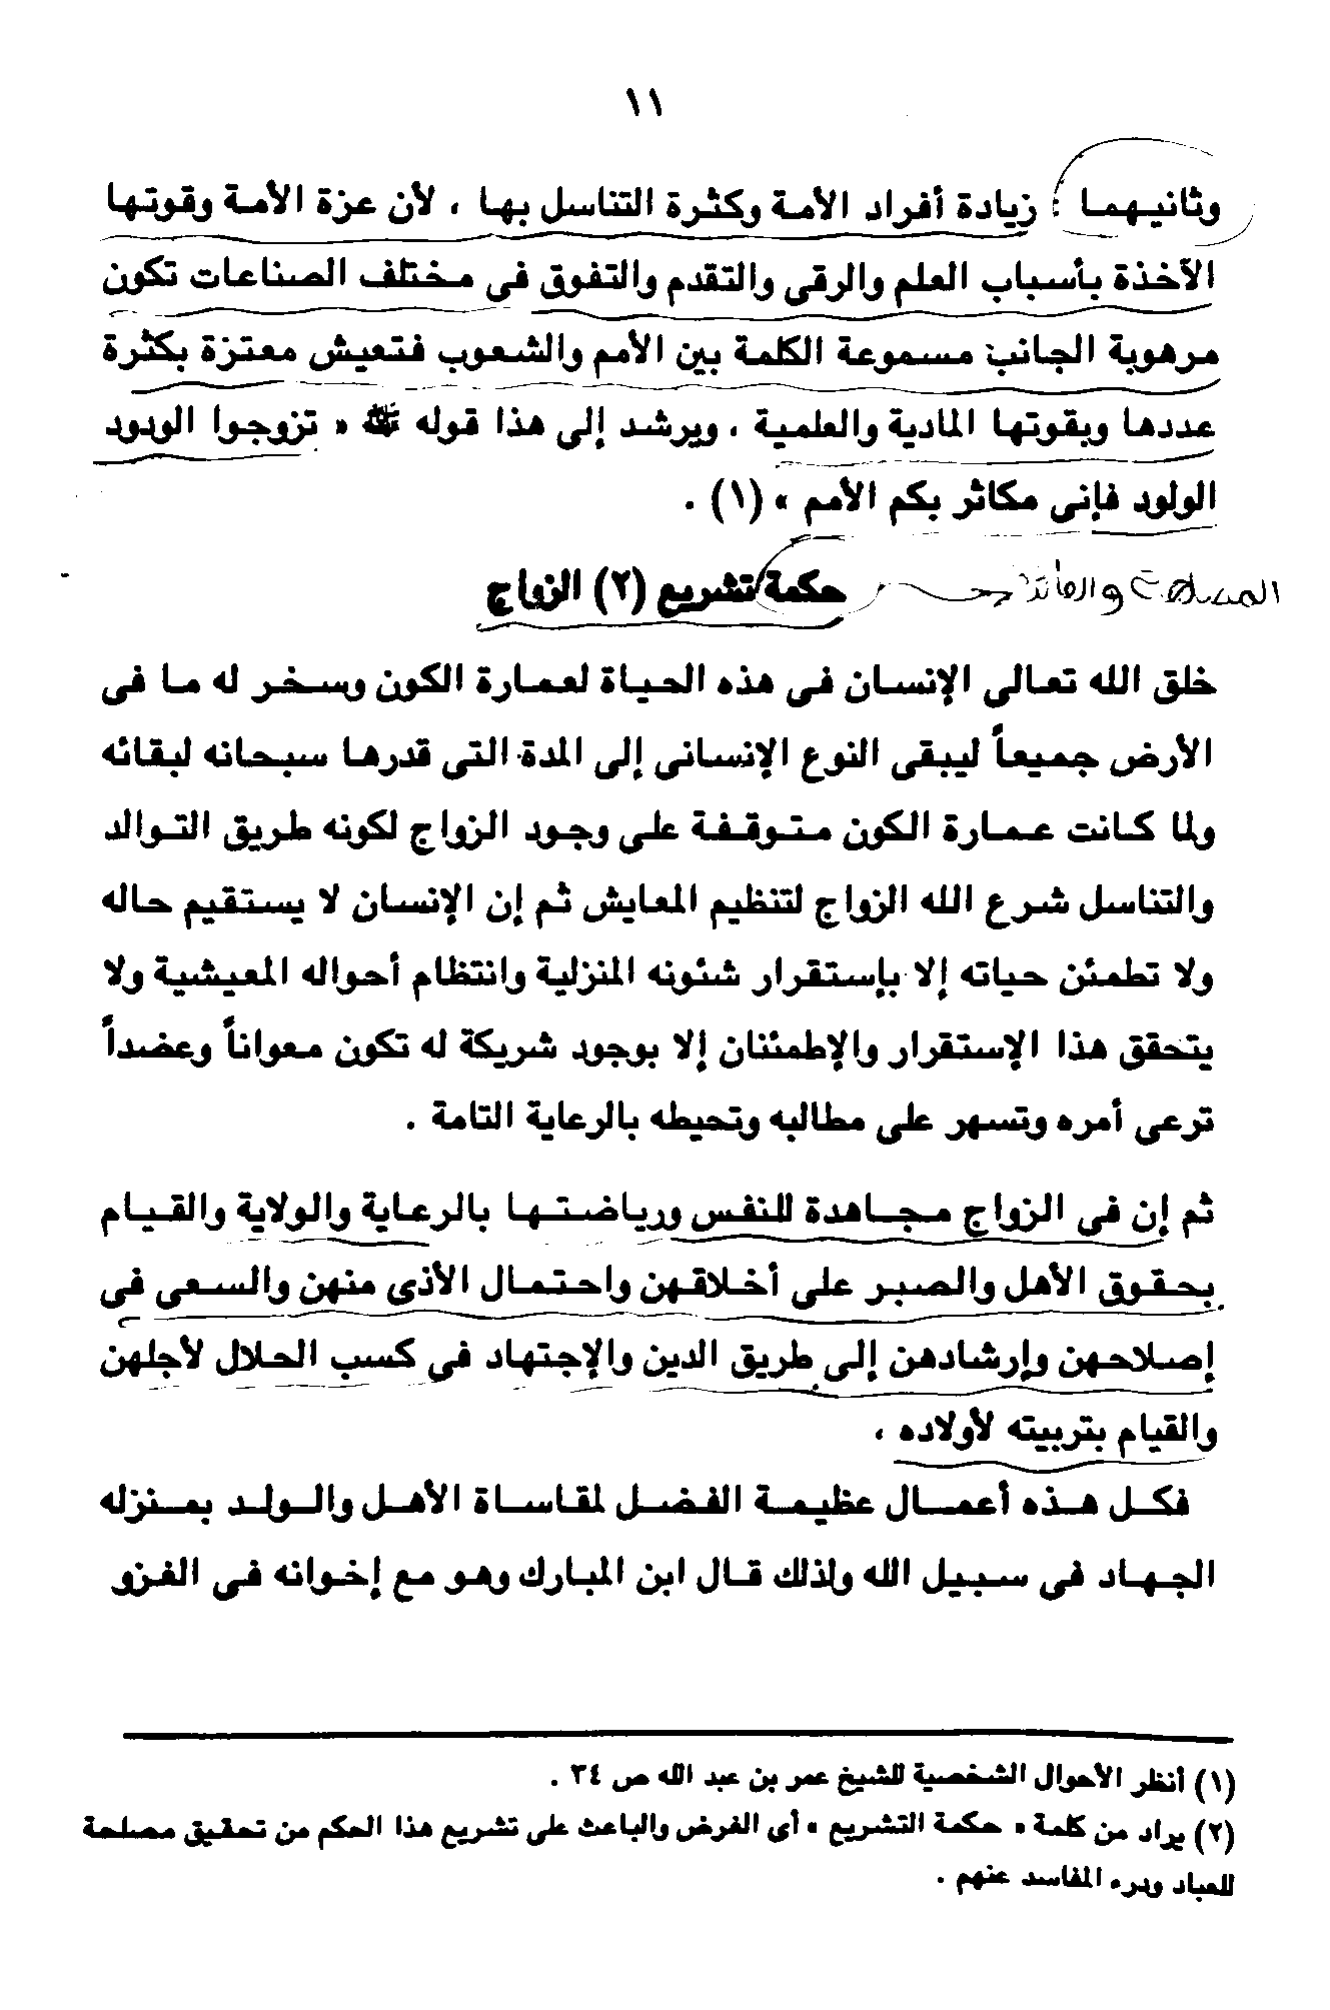 ١١
وثانيهما : زيادة أفراد الأمة وكثرة التناسل بها ، لأن عزة الأمة وقوتها
الآخذة بأسباب العلم والرقى والتقدم والتفوق فى مختلف الصناعات تكون
مرهوبة الجانب مسموعة الكلمة بين الأمم والشعوب فتعيش معتزة بكثرة
عددها وبقوتها المادية والعلمية ، ويرشد إلى هذا قوله ﷺ « تزوجوا الودود
الولود فإنى مكاثر بكم الأمم » (١) .
حكمة تشريع (٢) الزواج
المصلحة والفائدة
خلق الله تعالى الإنسان فى هذه الحياة لعمارة الكون وسخر له ما فى
الأرض جميعاً ليبقى النوع الإنسانى إلى المدة التى قدرها سبحانه لبقائه
ولما كانت عمارة الكون متوقفة على وجود الزواج لكونه طريق التوالد
والتناسل شرع الله الزواج لتنظيم المعايش ثم إن الإنسان لا يستقيم حاله
ولا تطمئن حياته إلا بإستقرار شئونه المنزلية وانتظام أحواله المعيشية ولا
يتحقق هذا الإستقرار والإطمئنان إلا بوجود شريكة له تكون معواناً وعضداً
ترعى أمره وتسهر على مطالبه وتحيطه بالرعاية التامة .
ثم إن فى الزواج مجاهدة للنفس ورياضتها بالرعاية والولاية والقيام
بحقوق الأهل والصبر على أخلاقهن واحتمال الأذى منهن والسعى فى
إصلاحهن وإرشادهن إلى طريق الدين والإجتهاد فى كسب الحلال لأجلهن
والقيام بتربيته لأولاده ،
فكل هذه أعمال عظيمة الفضل لمقاساة الأهل والولد بمنزله
الجهاد فى سبيل الله ولذلك قال ابن المبارك وهو مع إخوانه فى الغزو
(١) أنظر الأحوال الشخصية للشيخ عمر بن عبد الله ص ٣٤ .
(٢) يراد من كلمة « حكمة التشريع » أى الغرض والباعث على تشريع هذا الحكم من تحقيق مصلحة
للعباد ودرء المفاسد عنهم .